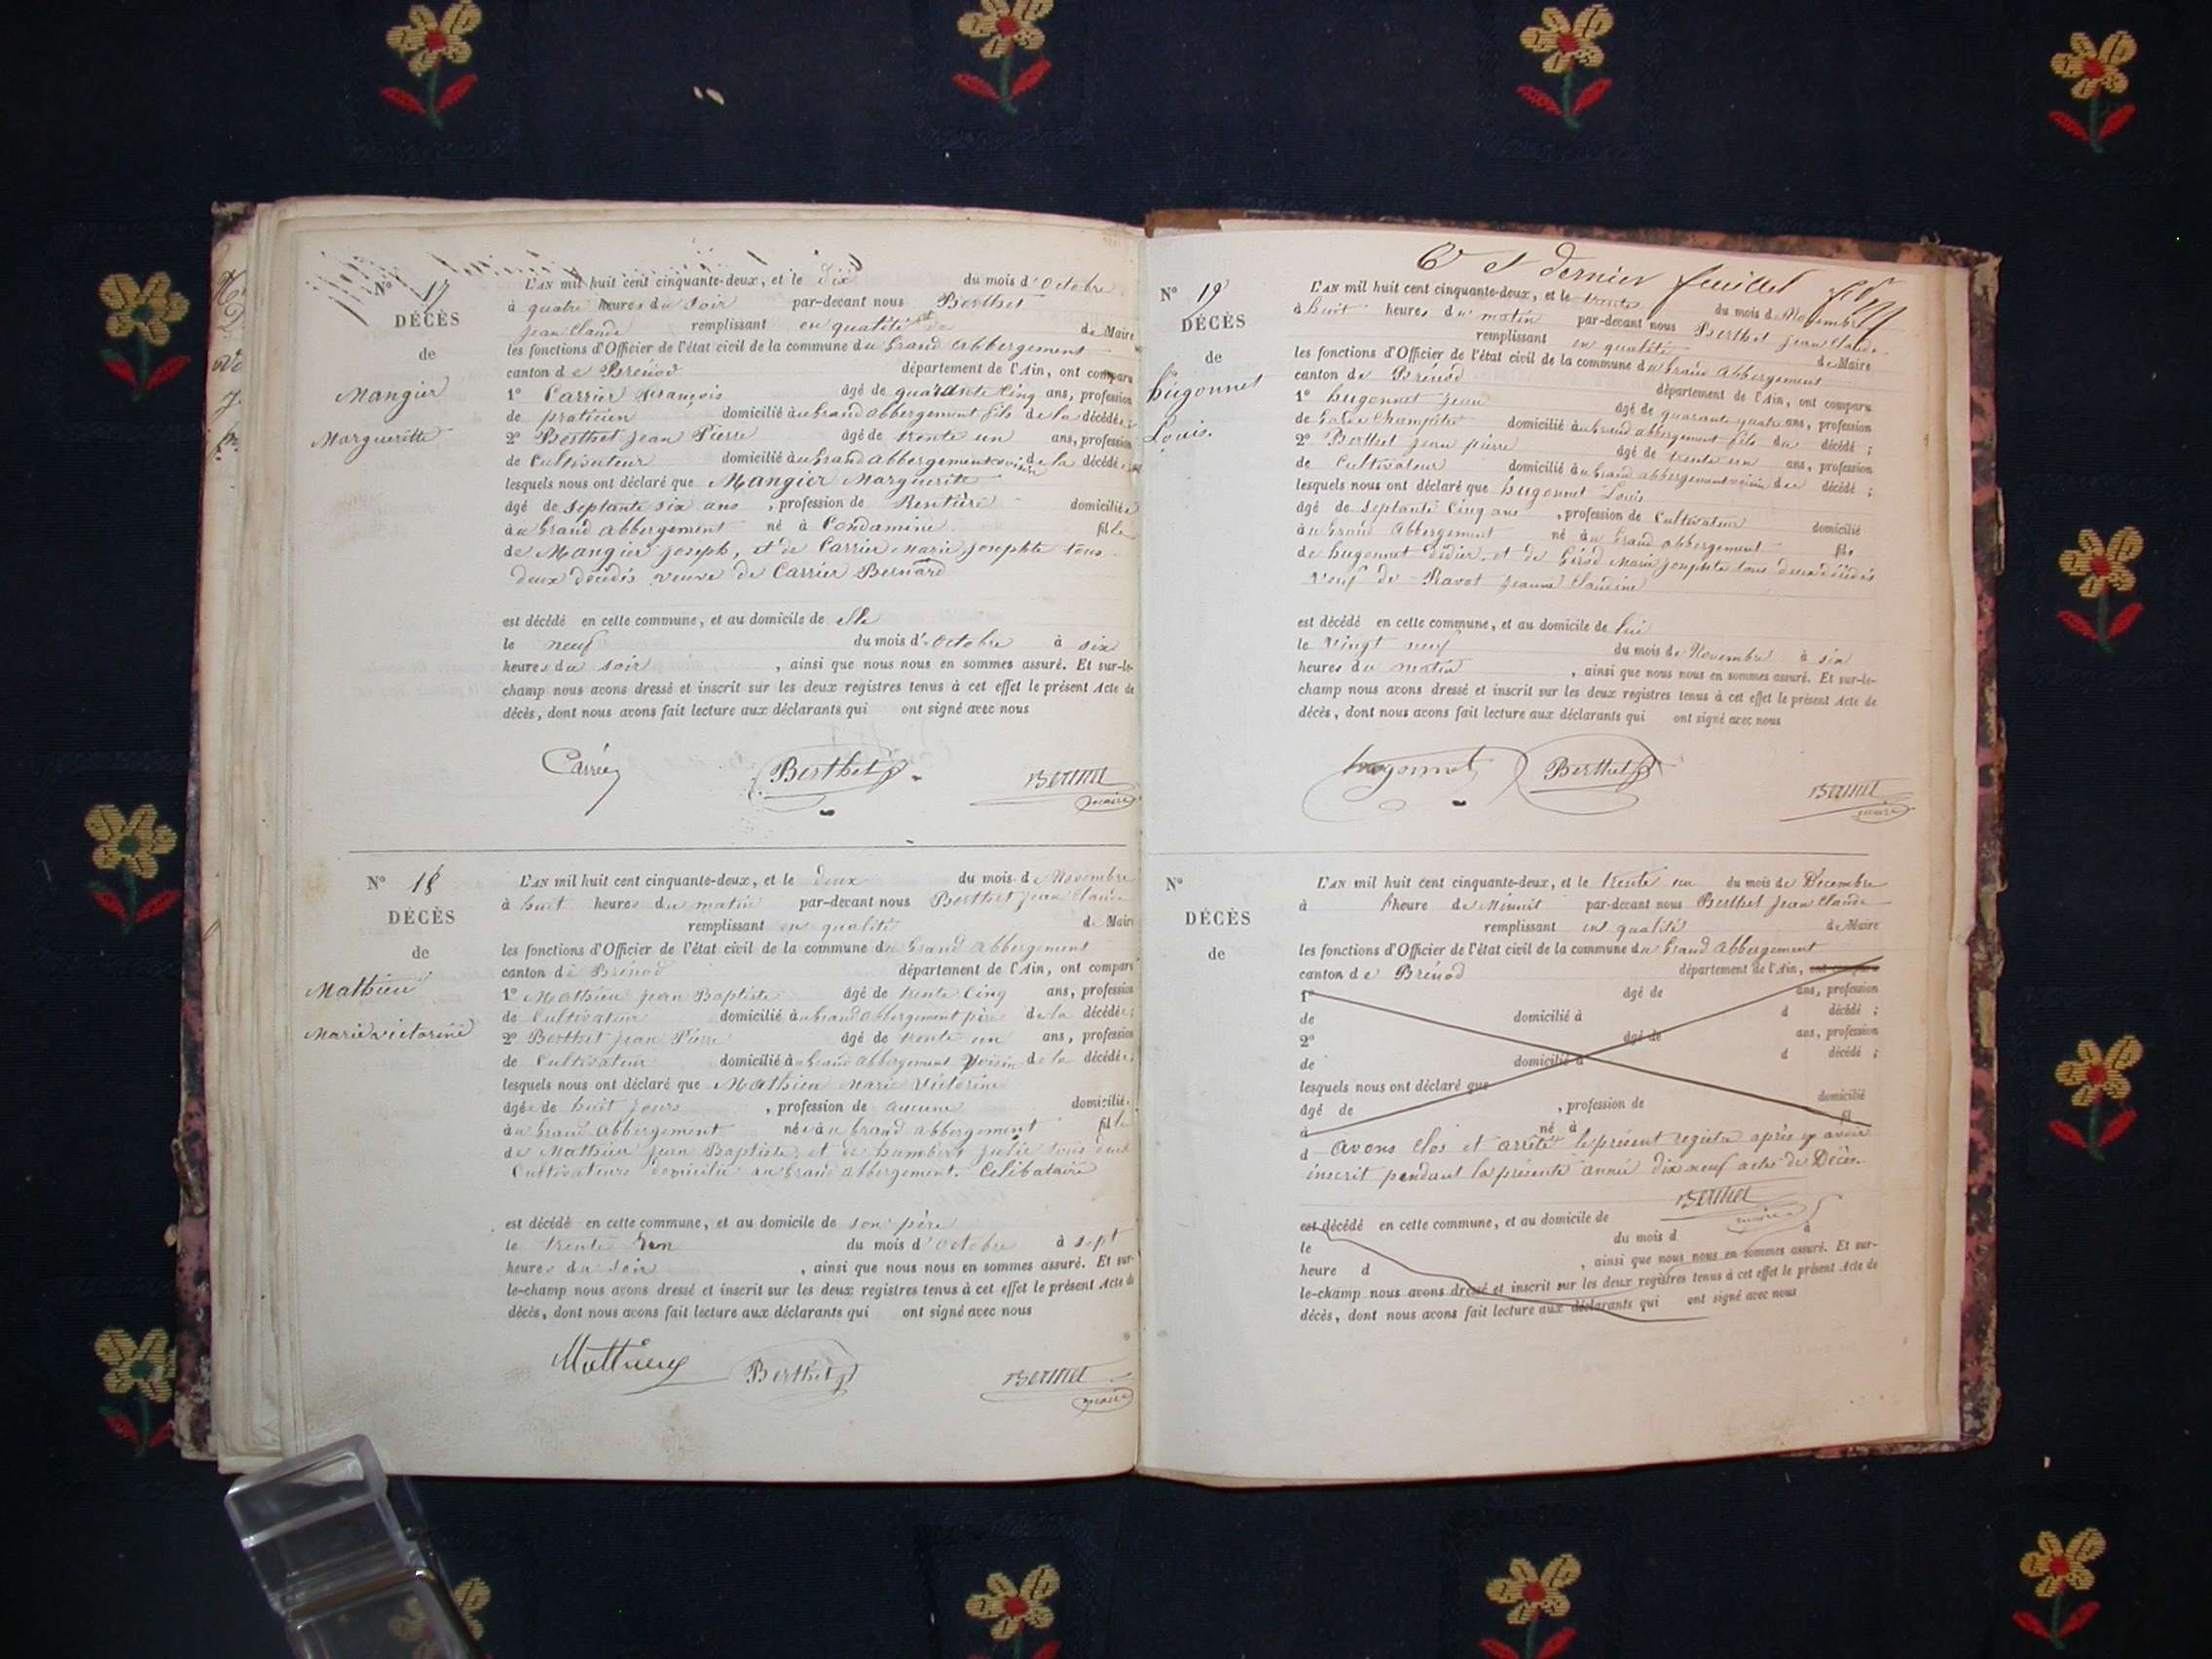 N° 17
DÉCÈS
de
Mangier
Margueritte
L'AN mil huit cent cinquante-deux, et le dix du mois d'Octobre
à quatre heures du soir par-devant nous Berthet
jean Claude remplissant en qualité de Maire
les fonctions d'Officier de l'état civil de la commune du Grand Abbergement
canton de Brénod département de l'Ain, ont comparu
1° Carrier françois âgé de quarante Cinq ans, profession
de praticien domicilié au Grand abbergement fils de la décédée;
2° Berthet Jean Pierre âgé de trente un ans, profession
de Cultivateur domicilié au Grand abbergement voisin de la décédée;
lesquels nous ont déclaré que Mangier Marguerite
âgé de Septante six ans, profession de Rentière domiciliée
au Grand Abbergement né à Condamine fille
de Mangier joseph, et de Carrier Marie josephte tous
deux décédés veuve de Carrier Bernard
est décédé en cette commune, et au domicile de elle
le neuf du mois d'Octobre à six
heures du soir, ainsi que nous nous en sommes assuré. Et sur-le-
champ nous avons dressé et inscrit sur les deux registres tenus à cet effet le présent Acte de
décès, dont nous avons fait lecture aux déclarants qui ont signé avec nous
Berthet Berthet
maire
N° 18
DÉCÈS
de
Mathieu
Marie victorine
L'AN mil huit cent cinquante-deux, et le deux du mois de Novembre
à huit heures du matin par-devant nous Berthet jean Claude
remplissant en qualité de Maire
les fonctions d'Officier de l'état civil de la commune du Grand Abbergement
canton de Brénod département de l'Ain, ont comparu
1° Mathieu jean Baptiste âgé de trente Cinq ans, profession
de Cultivateur domicilié au Grand Abbergement père de la décédée;
2° Berthet Jean Pierre âgé de trente un ans, profession
de Cultivateur domicilié au Grand Abbergement voisin de la décédée;
lesquels nous ont déclaré que Mathieu Marie Victorine
âgée de huit jours, profession de aucune domicilié
au Grand Abbergement née au Grand abbergement fille
de Mathieu jean Baptiste et de humbert julie tous deux
Cultivateurs domicilié au Grand abbergement. Célibataire
est décédé en cette commune, et au domicile de son père
le trente un du mois d'Octobre à sept
heures du soir, ainsi que nous nous en sommes assuré. Et sur-
le-champ nous avons dressé et inscrit sur les deux registres tenus à cet effet le présent Acte de
décès, dont nous avons fait lecture aux déclarants qui ont signé avec nous
Mathieu Berthet Berthet
maire
6e et dernier feuillet
N° 19
DÉCÈS
de
hugonnet
Louis.
L'AN mil huit cent cinquante-deux, et le trente du mois de Novembre
à huit heures du matin par-devant nous Berthet jean Claude
remplissant en qualité de Maire
les fonctions d'Officier de l'état civil de la commune du Grand Abbergement
canton de Brénod département de l'Ain, ont comparu
1° hugonnet jean âgé de quarante quatre ans, profession
de Garde Champêtre domicilié au Grand abbergement fils du décédé;
2° Berthet jean pierre âgé de trente un ans, profession
de Cultivateur domicilié au Grand abbergement voisin du décédé;
lesquels nous ont déclaré que hugonnet Louis
âgé de Septante Cinq ans, profession de Cultivateur domicilié
au Grand Abbergement né au Grand abbergement fils
de hugonnet didier, et de Girod Marie josephte tous deux décédés
veuf de Ravot jeanne Claudine
est décédé en cette commune, et au domicile de lui
le vingt neuf du mois de Novembre à six
heures du matin, ainsi que nous nous en sommes assuré. Et sur-le-
champ nous avons dressé et inscrit sur les deux registres tenus à cet effet le présent Acte de
décès, dont nous avons fait lecture aux déclarants qui ont signé avec nous
hugonnet Berthet Berthet
maire
N°
DÉCÈS
de
L'AN mil huit cent cinquante-deux, et le trente un du mois de Décembre
à heure de Minuit par-devant nous Berthet jean Claude
remplissant en qualité de Maire
les fonctions d'Officier de l'état civil de la commune du Grand Abbergement
canton de Brénod département de l'Ain, ont comparu
1° âgé de ans, profession
de domicilié à d décédé;
2° âgé de ans, profession
de domicilié à d décédé;
lesquels nous ont déclaré que
âgé de, profession de domicilié
à né à fil
d avons Clos et arrêté le présent registre après y avoir
inscrit pendant la présente année dix neuf actes de Décès.
Berthet
maire
est décédé en cette commune, et au domicile de
le du mois d à
heure d, ainsi que nous nous en sommes assuré. Et sur-
le-champ nous avons dressé et inscrit sur les deux registres tenus à cet effet le présent Acte de
décès, dont nous avons fait lecture aux déclarants qui ont signé avec nous